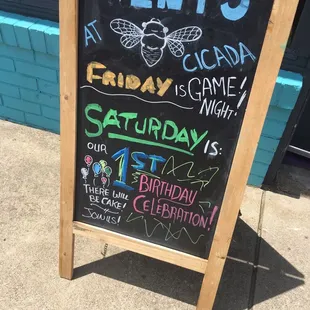 AT
CICADA
FRIDAY IS GAME
NIGHT!
SATURDAY IS:
OUR 1st
BIRTHDAY
CELEBRATION!
THERE WILL
BE CAKE!
JOIN US!